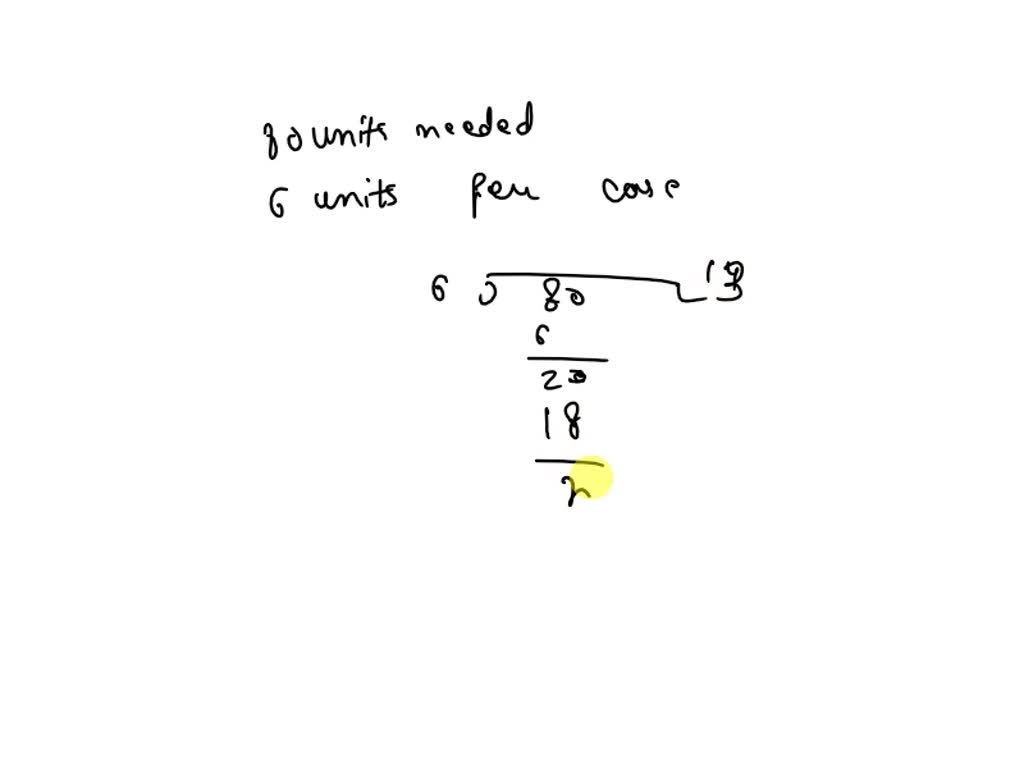 80 units needed
6 units per case
6 ) 80 13
6
20
18
2